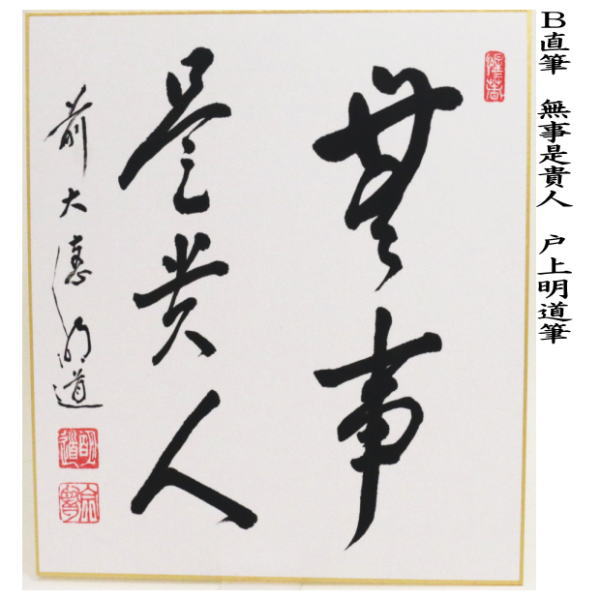 無事
是貴人
前大徳明道
B直筆　無事是貴人　戸上明道筆